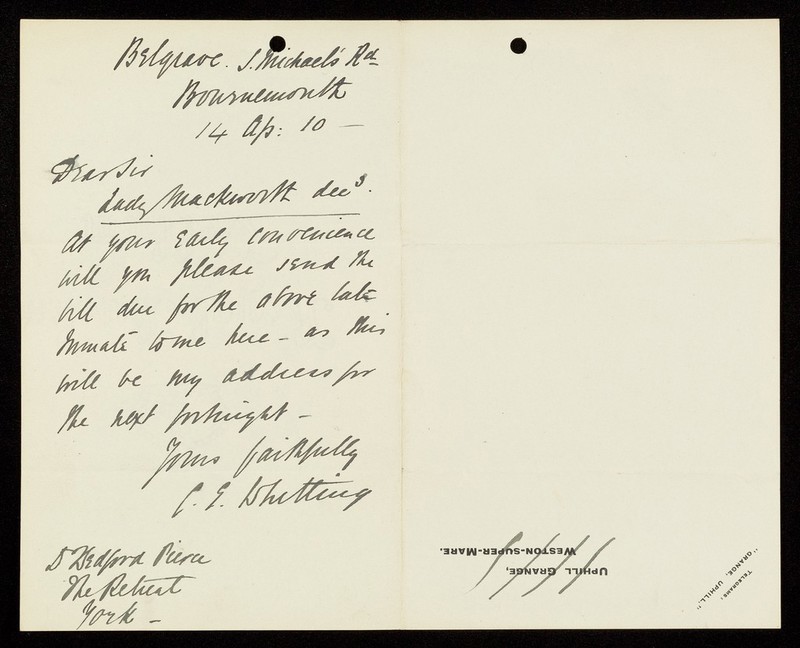 Belgrave. S. Michael's Rd
Bournemouth
14 Ap: 10 —
Dear Sir
Lady Mackworth decd.
At your early convenience
will you please send the
bill due for the above late
Inmate to me here – as this
will be my address for
the next fortnight –
Yours faithfully
C. E. Whitting
Dr Bedford Pierce
The Retreat
York –
UPHILL GRANGE,
WESTON-SUPER-MARE.
TELEGRAMS:
"GRANGE, UPHILL."